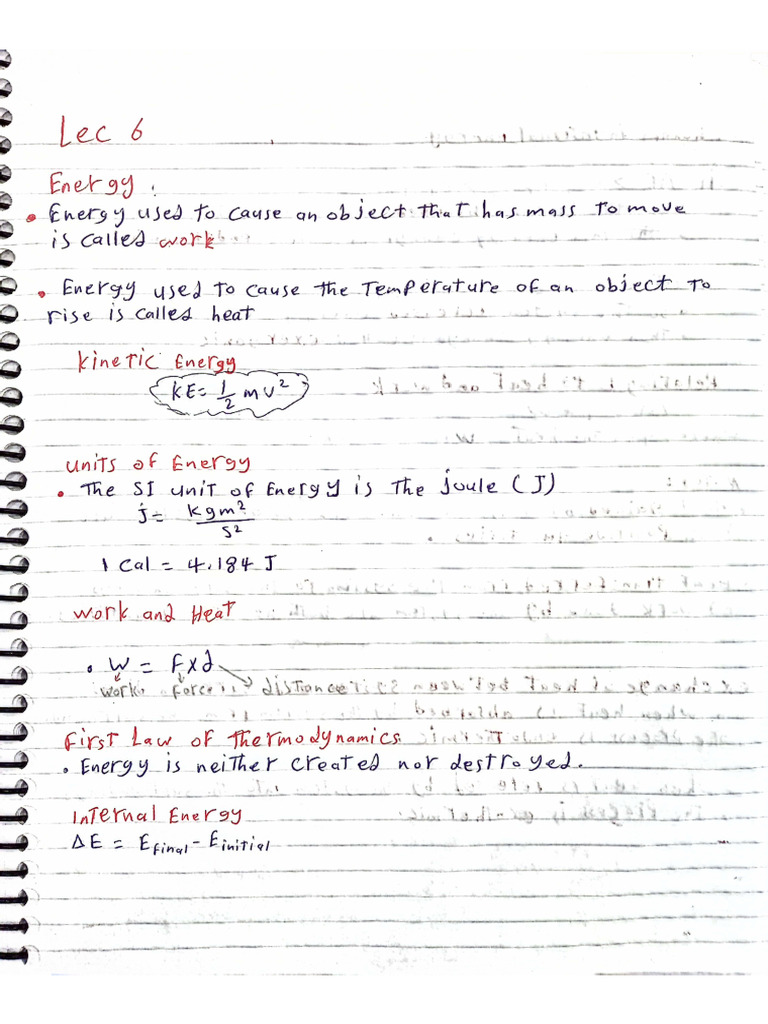 Lec 6
Energy:
• Energy used to cause an object that has mass to move
is called work
• Energy used to cause the temperature of an object to
rise is called heat
Kinetic Energy
KE = 1/2 mv²
Units of Energy
• The SI unit of Energy is the joule (J)
j = kgm²/s²
1 cal = 4.184 J
Work and Heat
• W = F x d
work force distance
First Law of Thermodynamics
• Energy is neither created nor destroyed.
Internal Energy
ΔE = E final - E initial